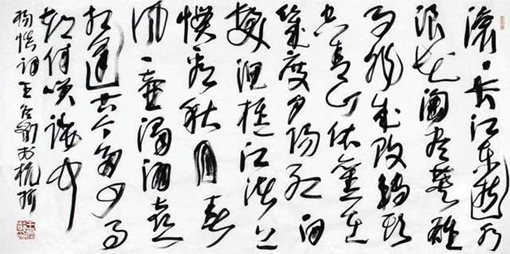 滚〻长江东逝水
浪花淘尽英雄
是非成败转头
空青山依旧在
几度夕阳红白
发渔樵江渚上
惯看秋月春
风一壶浊酒喜
相逢古今多少事
都付笑谈中
杨慎词王冬龄书